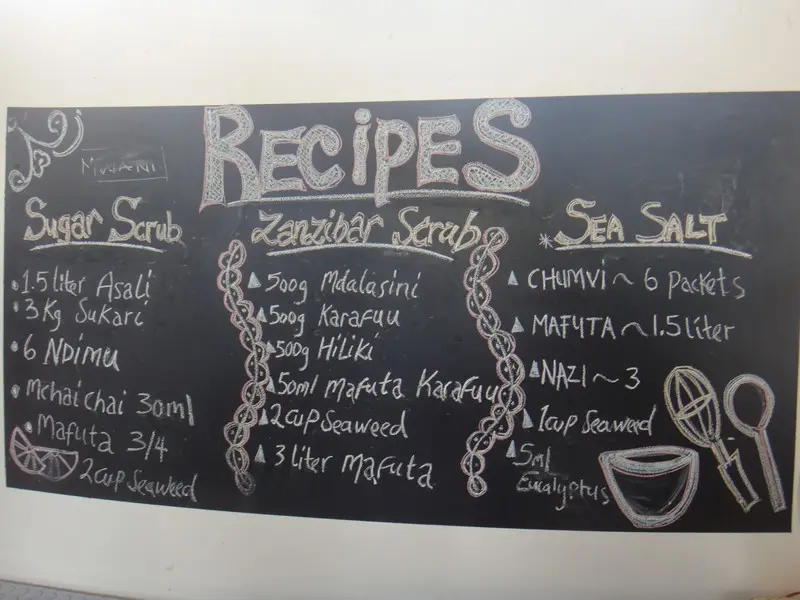 RECIPES
MWANI
Sugar Scrub
1.5 liter Asali
3 Kg Sukari
6 NDimu
Mchaichai 30ml
Mafuta 3/4
2cup Seaweed
Zanzibar Scrub
500g Mdalasini
500g Karafuu
500g HiLiki
50ml Mafuta Karafuu
2cup Seaweed
3 liter Mafuta
* SEA SALT
CHUMVi ~ 6 Packets
MAFUTA ~ 1.5 liter
NAZI ~ 3
1cup Seaweed
5ml
Eucalyptus